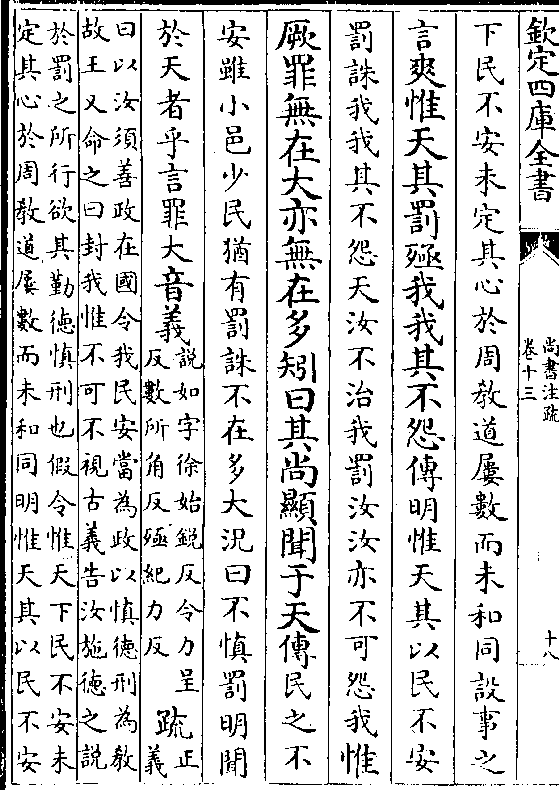 欽定四庫全書
尚書注疏
卷十三
十八
下民不安未定其心於周教道屢數而未和同設事之
言爽惟天其罰殛我我其不怨傳明惟天其以民不安
罰誅我我其不怨天汝不治我罰汝汝亦不可怨我惟
厥罪無在大亦無在多矧曰其尚顯聞于天傳民之不
安雖小邑少民猶有罰誅不在多大況曰不慎罰明聞
於天者乎言罪大音義
說如字徐始銳反令力呈
反數所角反殛紀力反
疏
正
義
曰以汝須善政在國令我民安當為政以慎德刑為教
故王又命之曰封我惟不可不視古義告汝施德之說
於罰之所行欲其勤德慎刑也假令惟天下民不安未
定其心於周教道屢數而未和同明惟天其以民不安